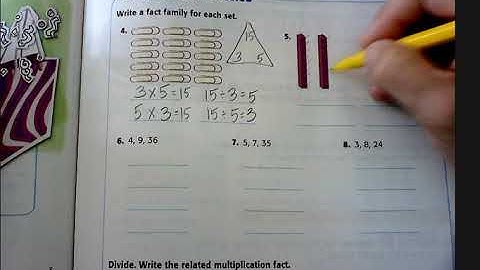 Write a fact family for each set.
4.
15
3 5
5.
3 x 5 = 15 15 ÷ 3 = 5
5 x 3 = 15 15 ÷ 5 = 3
6. 4, 9, 36 7. 5, 7, 35 8. 3, 8, 24
Divide. Write the related multiplication fact.